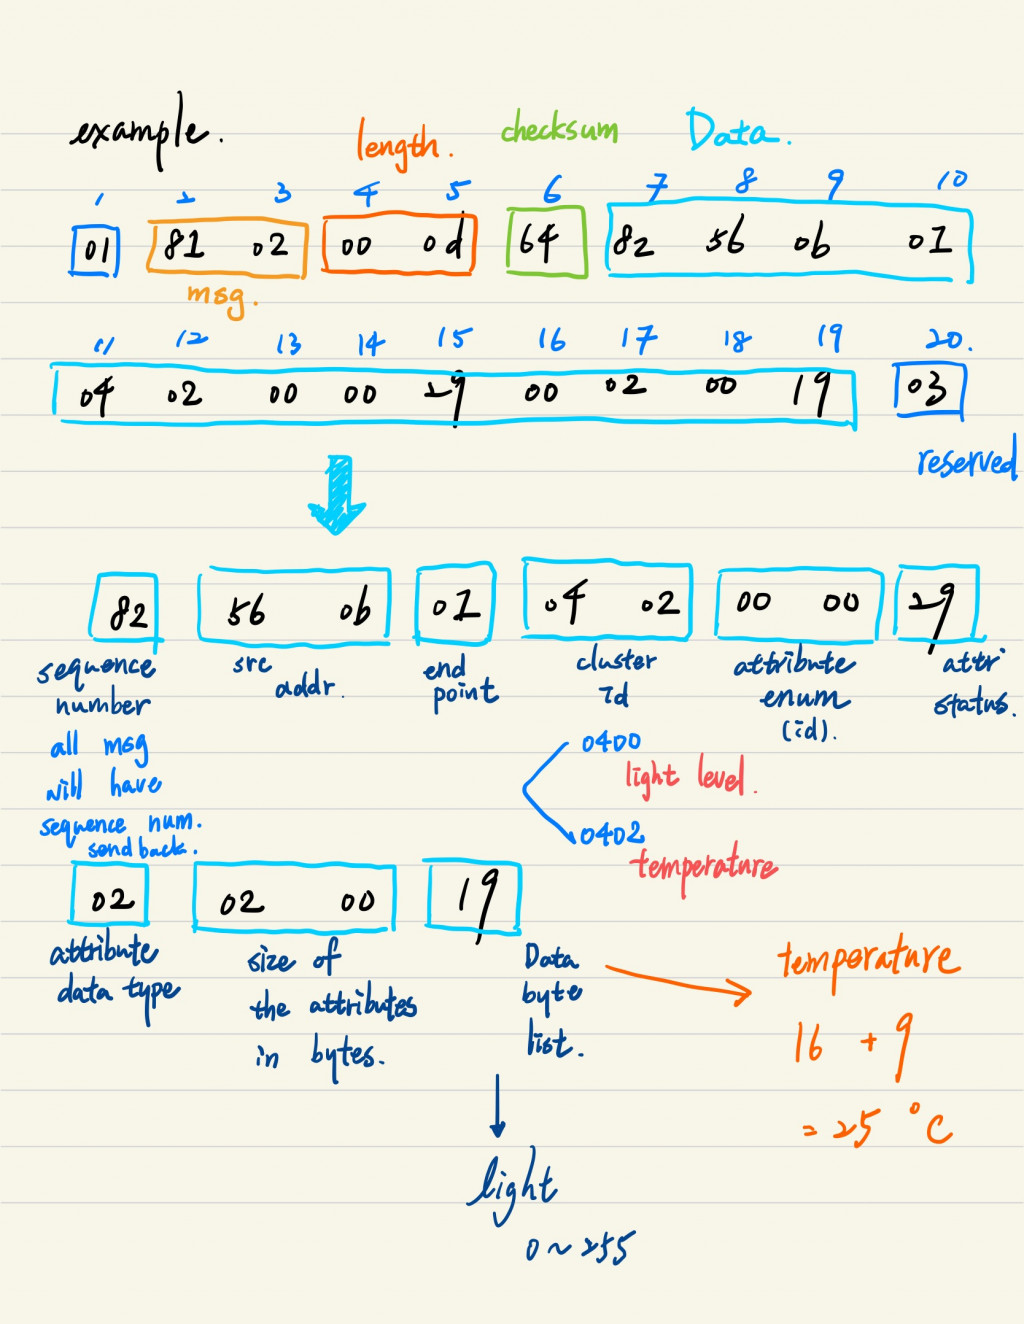 example. length. checksum Data.
1 2 3 4 5 6 7 8 9 10
01 81 02 00 0d 64 82 56 0b 01
msg.
11 12 13 14 15 16 17 18 19 20.
04 02 00 00 29 00 02 00 19 03
reserved
82 56 0b 01 04 02 00 00 29
sequence
number
src
addr.
end
point
cluster
id
attribute
enum
(id).
attri
status.
all msg
will have
sequence num.
send back.
0400
light level.
0402
temperature
02 02 00 19
attribute
data type
size of
the attributes
in bytes.
Data
byte
list.
temperature
16 + 9
= 25 °C
light
0 ~ 255